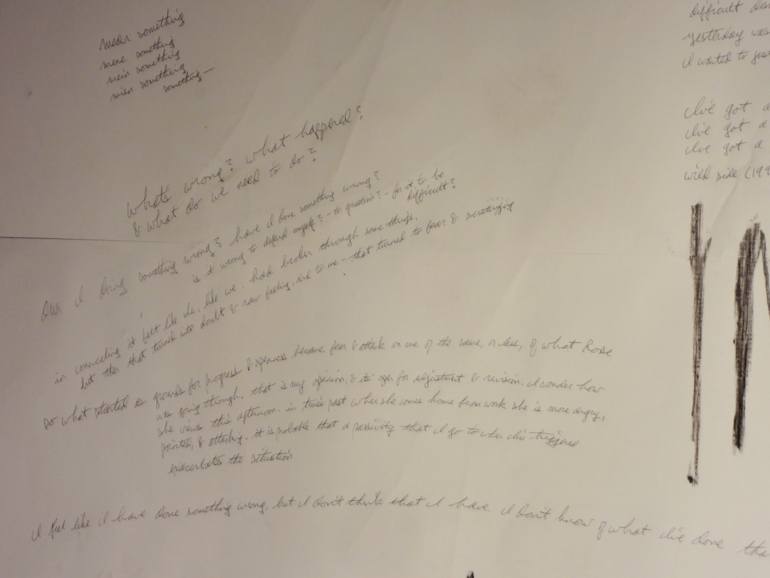 something
mene something
mein something
mien something
something—
whats wrong? what happened?
& what do we need to do?
Am I being something wrong? have I done something wrong?
is it wrong to defend myself? - to question? - for it to be
difficult?
in counseling it felt like we had broken through some things,
but then that turned into doubt & raw feeling, and to me - that turned to fear & scrutinizing
so what started as grounds for progress & openness became fear & attack on me of the same, or less, of what Rose
was going through. that is my opinion, & its open for adjustment & revision. I wonder how
she views this afternoon. in times past when she comes home from work she is more angry,
pointed, & attacking. it is probable that a passivity that I go to when I'm triggered
exacerbates the situation
I feel like I have done something wrong, but I don't think that I have I don't know of what I've done tha
difficult
yesterday was
I wanted to
I've got a
I've got a
I've got a
wild side (199